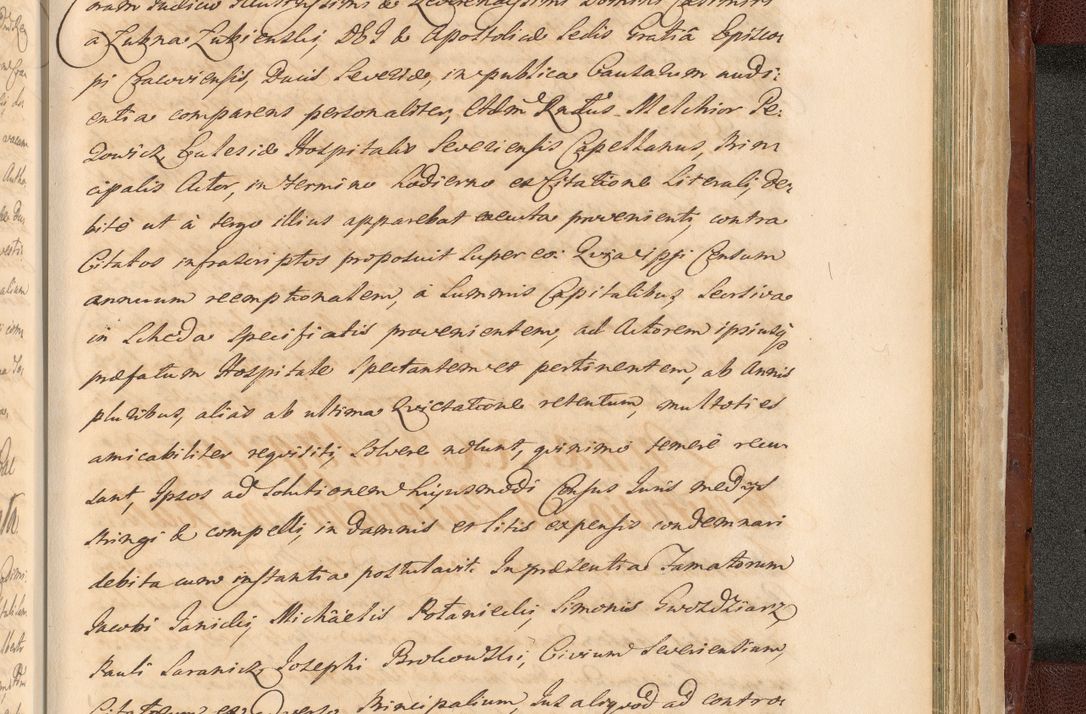 oram Judicio Illustrissimi & Reverendissimi Domini Casimiri
à Łubna Łubienski, DEI & Apostolicæ Sedis Gratiâ Episco-
pi Cracoviensis, Ducis Severiæ, in publica Causarum audi-
entia comparens personaliter, Adm Rndus Melchior Pe-
Ecclesiæ Hospitalis Severiensis Capellanus, Prin
cipalis Actor, in termino hodierno ex Citatione Literali, de-
bitè ut à tergo illius apparebat executa provenienti, contra
Citatos infrascriptos proposuit super eo: Quia ipsi Censum
annuum reemptionalem, à Summis Capitalibus
in Scheda specificatis provenientem, ad Actorem ipsiusq
præfatum Hospitale spectantem et pertinentem, ab Annis
pluribus, alias ab ultima Quietatione retentum, multoties
amicabiliter requisiti, solvere nolunt, quinimo temerè recu-
sant, Ipsos ad Solutionem hujusmodi Census Juris medijs
stringi & compelli, in damnis et litis expensis condemnari
debita cum instantia postulavit. In præsentia Famatorum
Jacobi Janicki, Michäelis Potaniecki, Simonis Gwozdziarz,
Pauli Saranicz, Josephi Brohowski, Civium Severiensium,
Citatorum ex adverso Principalium, Jus aliquod ad contra